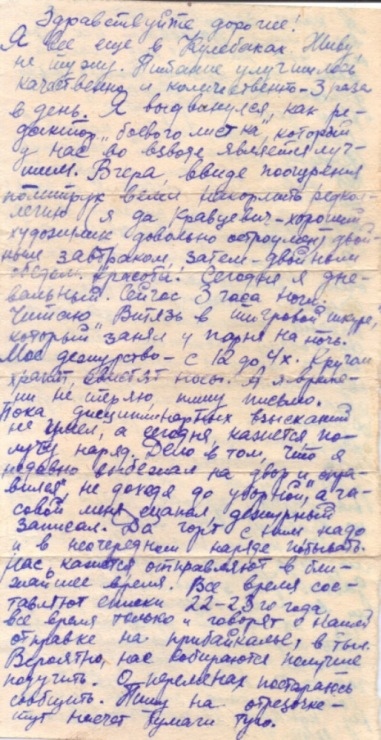 Здравствуйте дорогие!
Я все еще в Кулебаках. Живу,
не тужу. Питание улучшилось
качественно и количественно - 3 раза
в день. Я выдвинулся, как ре-
дактор "боевого листка", который
у нас во взводе является луч-
шим. Вчера, ввиде поощрения
политрук велел накормить редкол-
легию (я да Кравцевич - хороший
художник довольно остроумен) двой-
ным завтраком, затем - двойным
обедом. Красота! Сегодня я дне-
вальный. Сейчас 3 часа ночи.
Читаю "Витязь в тигровой шкуре",
который занял у парня на ночь.
Мое дежурство - с 12 до 4х. Кругом
храпят, свистят носы. А я време-
ни не теряю, пишу письмо.
Пока дисциплинарных взысканий
не имел, а сегодня, кажется по-
лучу наряд. Дело в том, что я
недавно выбежал на двор и опра-
вился не доходя до уборной, а ча-
совой меня сцапал, дежурный
записал. Да чорт с ним надо
и в неочередном наряде побывать.
Нас, кажется отправляют в бли-
жайшее время. Все время сос-
тавляют списки 22-23го года,
все время только и говорят о нашей
отправке на прибайкалье, в тыл.
Вероятно, нас собираются получше
подучить. О переменах постараюсь
сообщить. Пишу на отрезочке-
тут насчет бумаги туго.